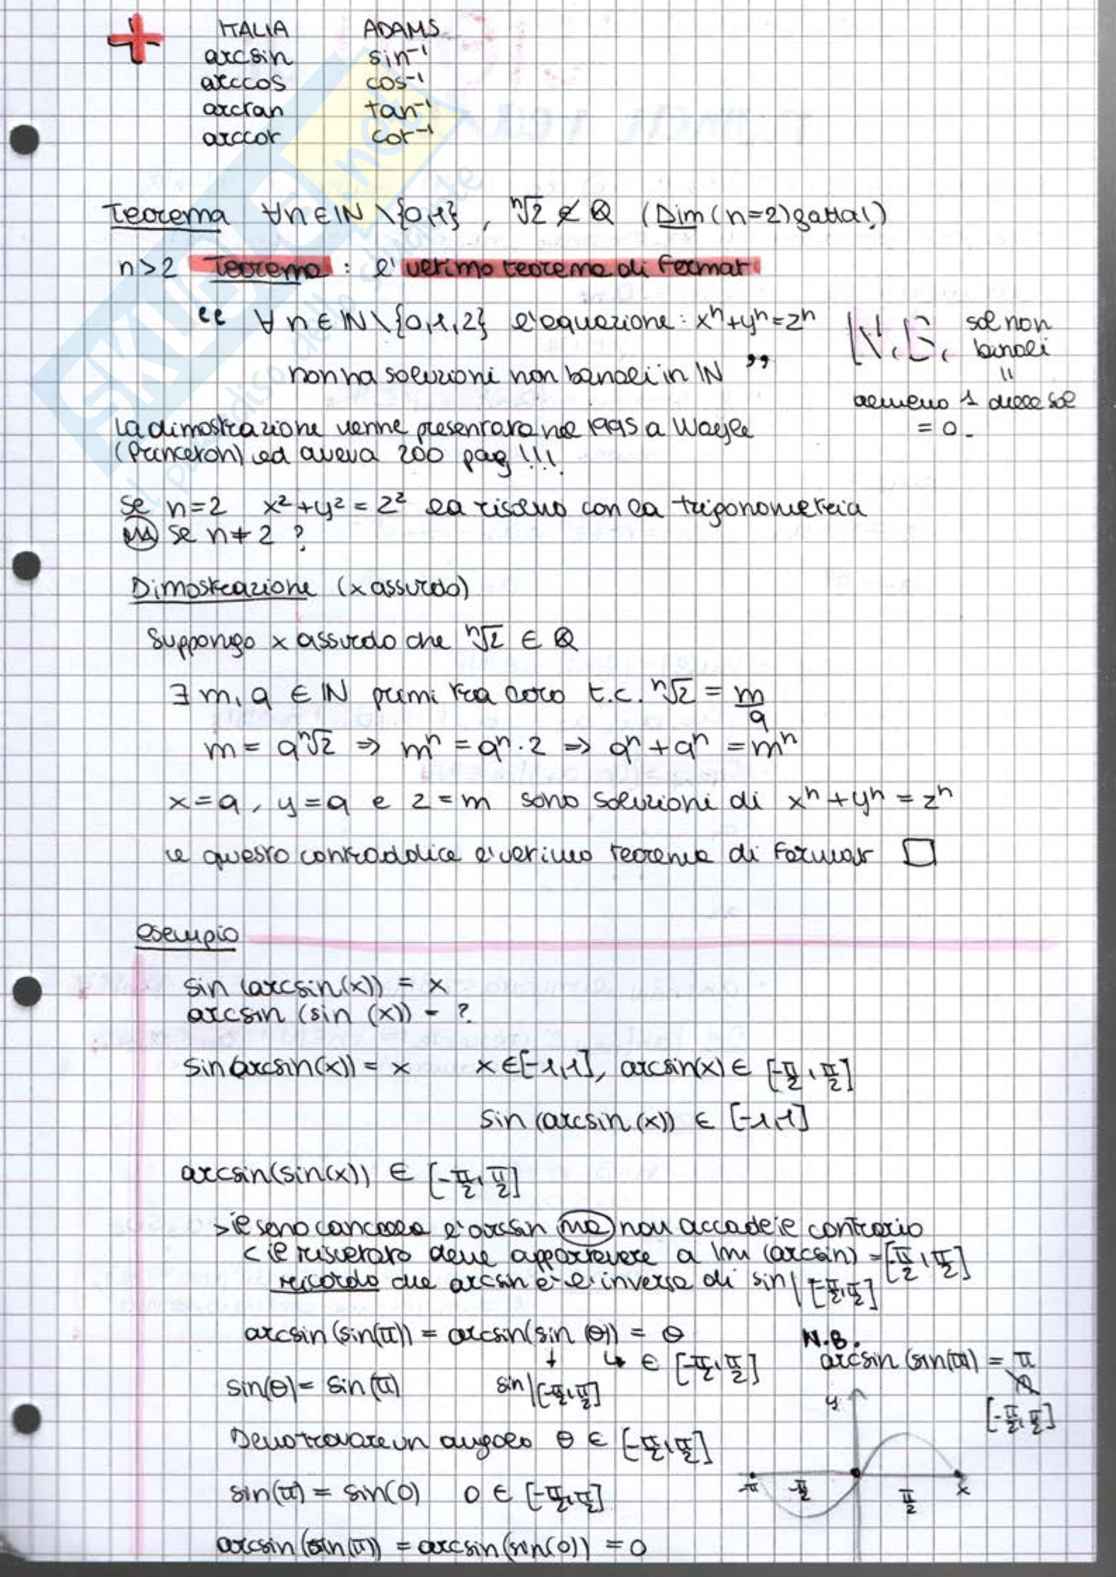 ITALIA ADAMS
arcsin sin⁻¹
arccos cos⁻¹
arctan tan⁻¹
arccot cot⁻¹
Teorema ∀n∈ℕ\{0,1}, ⁿ√2 ∉ ℚ (Dim (n=2) fatta!)
n>2 Teorema: l'ultimo teorema di Fermat
“ ∀n∈ℕ\{0,1,2} l'equazione: xⁿ+yⁿ=zⁿ
non ha soluzioni non banali in ℕ ”
sol non
banali
"
almeno 1 delle sol
= 0.
La dimostrazione venne presentata nel 1995 a
(Princeton) ed aveva 200 pag!!!
Se n=2 x²+y²=z² la risolvo con la trigonometria
MA se n≠2 ?
Dimostrazione (x assurdo)
Suppongo x assurdo che ⁿ√2 ∈ ℚ
∃ m, q ∈ ℕ primi tra loro t.c. ⁿ√2 = m/q
m = qⁿ√2 ⇒ mⁿ = qⁿ·2 ⇒ qⁿ+qⁿ = mⁿ
x=q, y=q e z=m sono soluzioni di xⁿ+yⁿ=zⁿ
e questo contraddice l'ultimo teorema di Fermat □
esempio
sin (arcsin(x)) = x
arcsin (sin (x)) = ?
sin(arcsin(x)) = x x∈[-1,1], arcsin(x) ∈ [-π/2, π/2]
sin (arcsin (x)) ∈ [-1,1]
arcsin(sin(x)) ∈ [-π/2, π/2]
> il seno cancella l'arcsin ma non accade il contrario
< il risultato deve appartenere a Im (arcsin) = [-π/2, π/2]
ricordo che arcsin è l'inversa di sin|[-π/2, π/2]
arcsin (sin(π)) = arcsin(sin (θ)) = θ
↓ ↳ ∈ [-π/2, π/2]
sin(θ) = sin(π) sin|[-π/2, π/2]
N.B.
arcsin (sin(π)) = π
∉
[-π/2, π/2]
Devo trovare un angolo θ ∈ [-π/2, π/2]
sin(π) = sin(0) 0 ∈ [-π/2, π/2]
y
-π -π/2 π/2 x
arcsin(sin(π)) = arcsin(sin(0)) = 0
SKUOLA.net